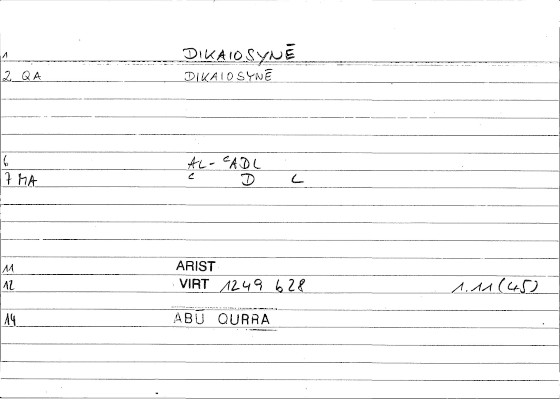 1 DIKAIOSYNĒ
2 QA DIKAIOSYNĒ
6 AL-ʿADL
7 MA ʿ D L
11 ARIST
12 VIRT 1249 b 28 1.11 (45)
14 ABŪ QURRA